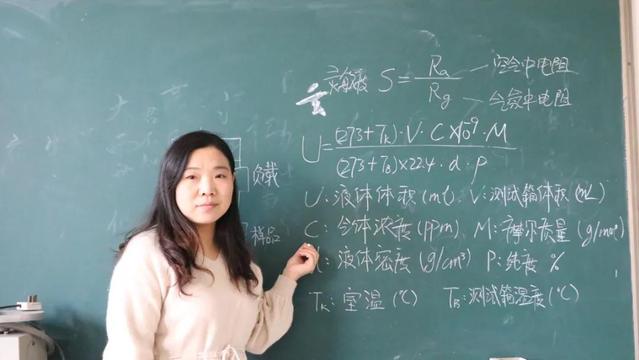 灵敏度 S = Ra / Rg
空气中电阻
气氛中电阻
U = (273+TR)·V·C×10⁻⁹·M / (273+TB)×22.4·d·p
负载
U: 液体体积(mL) V: 测试箱体积(mL)
C: 气体浓度(ppm) M: 摩尔质量(g/mol)
样品
d: 液体密度(g/cm³) P: 纯度 %
TR: 室温(℃) TB: 测试箱温度(℃)